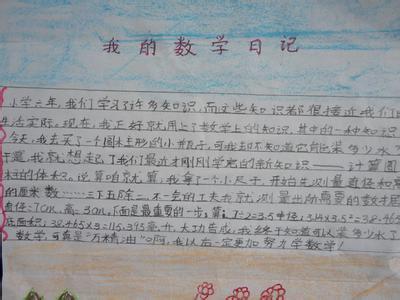 我的数学日记
小学六年，我们学习了许多知识，而这些知识都很接近我们的
生活实际。现在，我正好就用上了数学上的知识，其中的一种
今天，我去买了一个圆木主形的小瓶子，可我却不知道它能装多少水了
于是，我就想起了我们最近才刚刚学完的新知识——计算圆
的体积。说算咱就算，我拿了一个小尺子，开始先测量直径和高
的厘米数……三下五除二，不一会的工夫我就测量出所需要的数
直径：7cm，高：3cm。下面是最重要的一步：算。7÷2=3.5 3.14×3.5²=38.465
底面积，38.465×3=115.395毫升，大功告成，我终于知道可以装多少水了
数学，可真是“万精油”啊，我以后一定更加努力学数学！